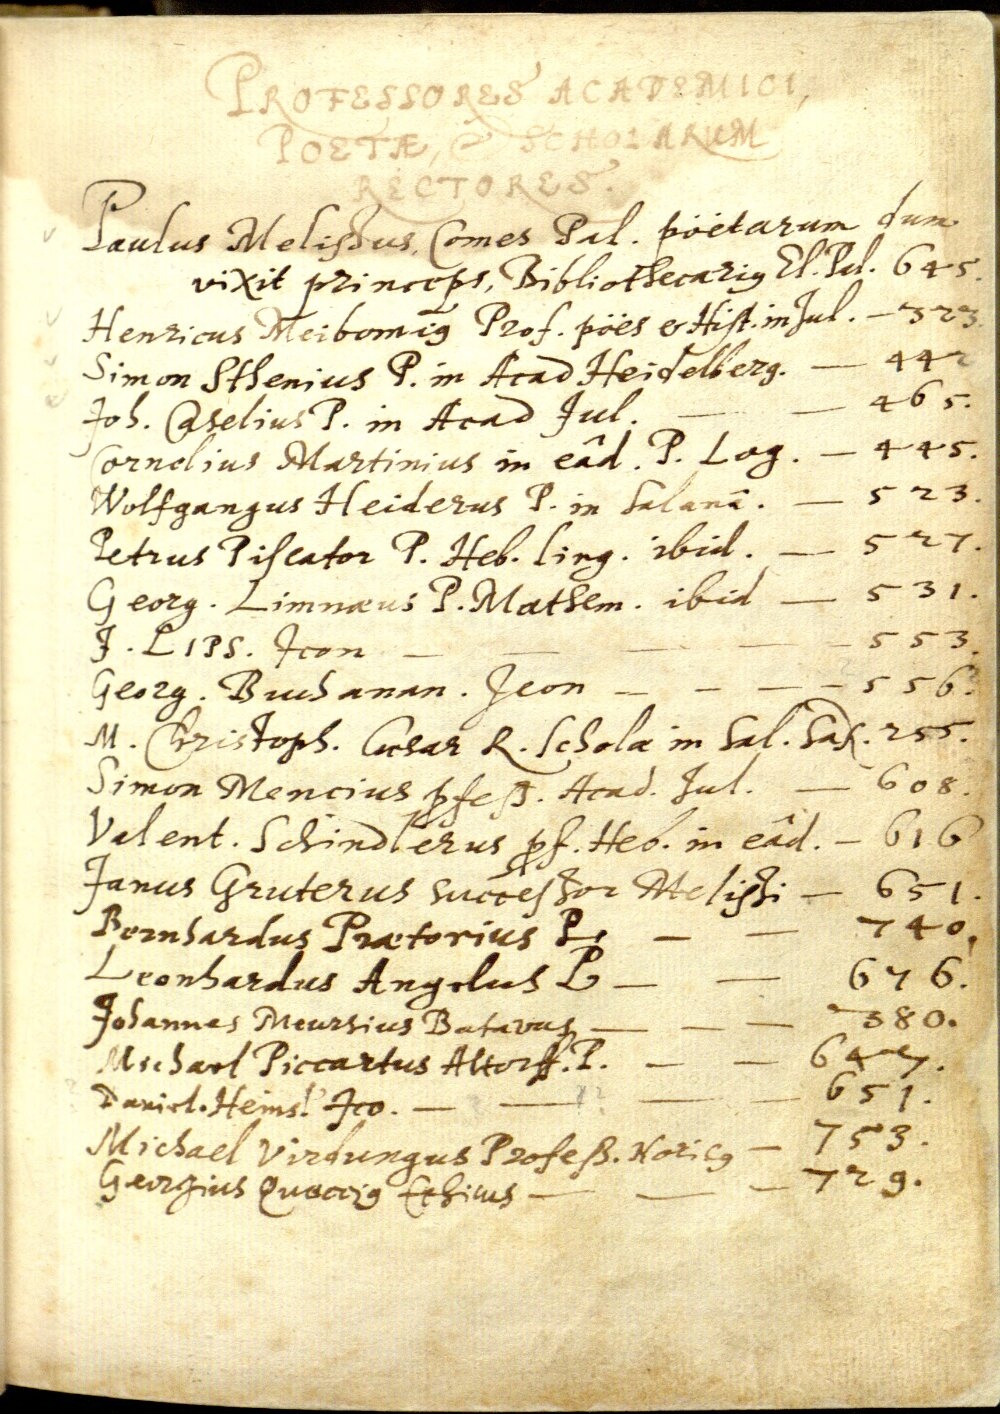 PROFESSORES ACADEMICI,
POETÆ, & SCHOLARUM
RECTORES.
Paulus Melissus, Comes Pal. poëtarum dum
vixit princeps, Bibliothecarig El. Pal. 645.
Henricus Meibomig Prof. poës & Hist. in Jul. — 323.
Simon Sthenius P. in Acad Heidelberg. — 442
Joh. Caselius P. in Acad Jul. — — 465.
Cornelius Martinius in eâd. P. Log. — 445.
Wolfgangus Heiderus P. in Salanâ. — 523.
Petrus Piscator P. Heb. ling. ibid. — 527.
Georg. Limnæus P. Mathem. ibid — 531.
J. LIPS. Icon — — — — — 553.
Georg. Buchanan. Icon — — — — 556.
M. Christoph. Cæsar R. Scholæ in Hal. Sax. 255.
Simon Mencius pfess. Acad. Jul. — 608.
Valent. Schindlerus pf. Heb. in eâd. — 616
Janus Gruterus successor Melissi — 651.
Bernhardus Prætorius PL — — 740.
Leonhardus Angelus PL — — 676.
Johannes Meursius Batavus — — — 380.
Michael Piccartus Altorff. P. — — 647.
Daniel. Heins. Ico. — — — — 651.
Michael Virdungus Profess. Noricg — 753.
Georgius Quæccig — — — 729.